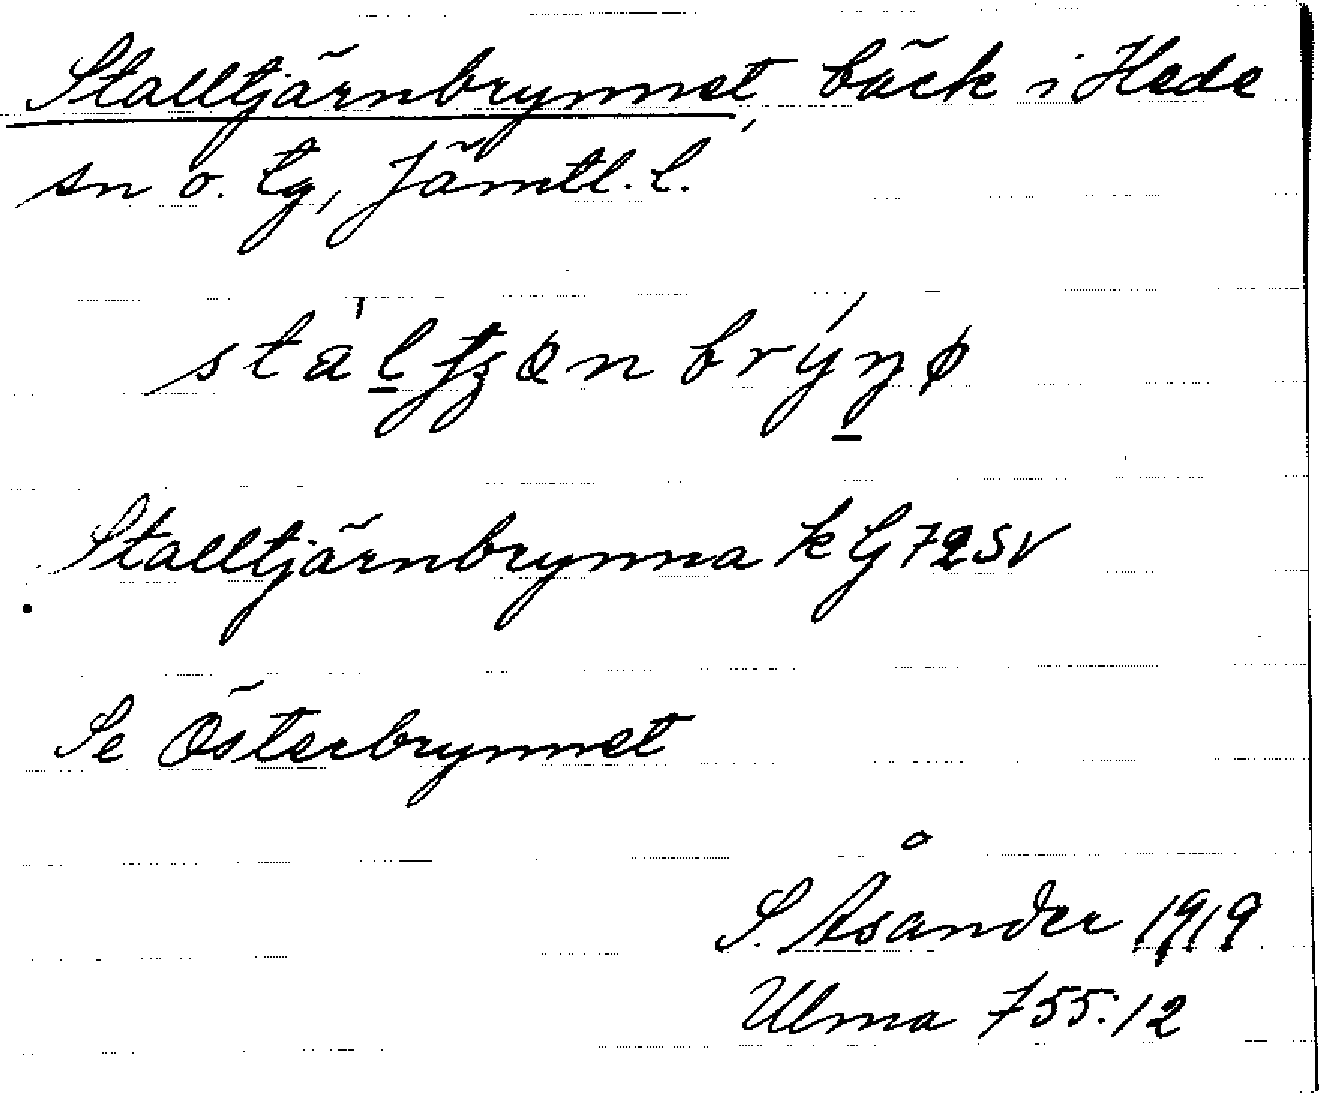 Stalltjärnbrynnet, bäck i Hede
sn o. tg, Jämtl. l.
Stalltjärnbrynna k G 72 SV
Se Österbrynnet
S. Åsander 1919
Ulma 755:12